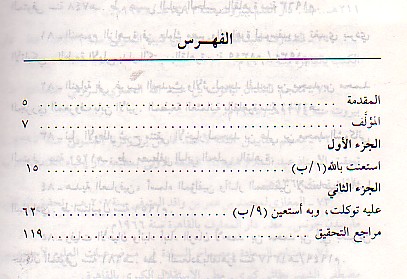 الفهرس
المقدمة ........ ٥
المؤلف ........ ٧
الجزء الأول
استعنت بالله (١/ب) ........ ١٥
الجزء الثاني
عليه توكلت، وبه أستعين (٩/ب) ........ ٦٢
مراجع التحقيق ........ ١١٩